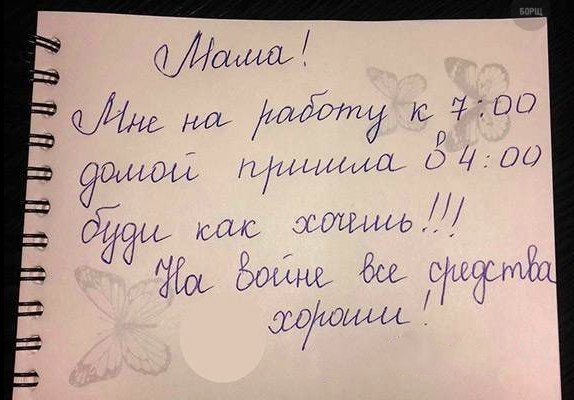 БОРЩ
Мама!
Мне на работу к 7:00
домой пришла в 4:00
буди как хочешь!!!
На войне все средства
хороши!